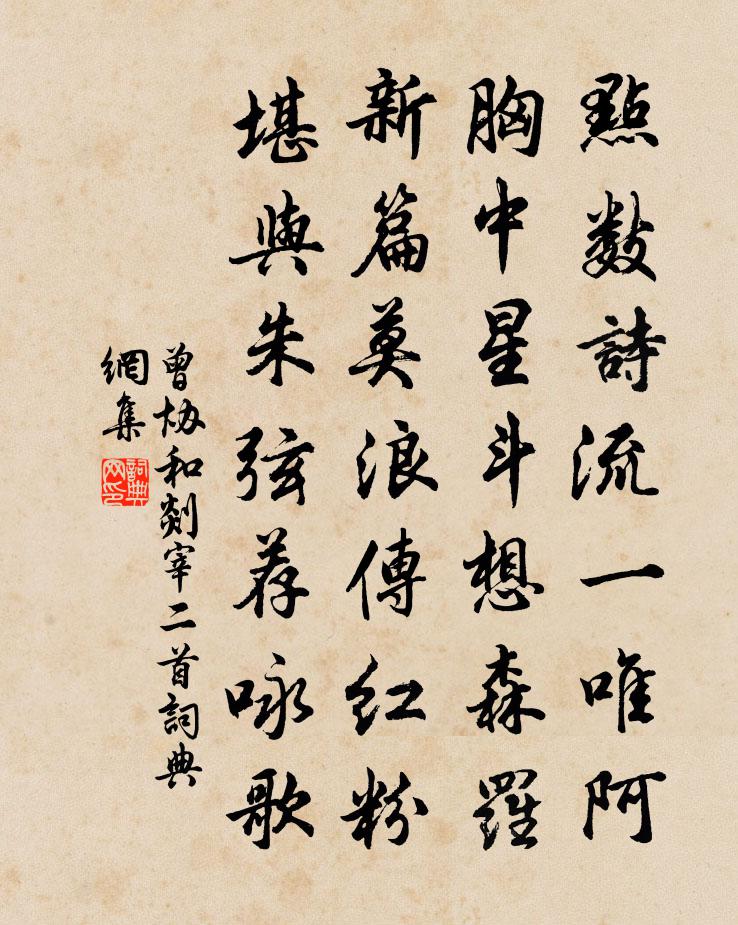 點數詩流一唯阿
胸中星斗想森羅
新篇莫浪傳紅粉
堪與朱弦荐咏歌
曾協和剡宰二首詞典
網集
詞典
网印